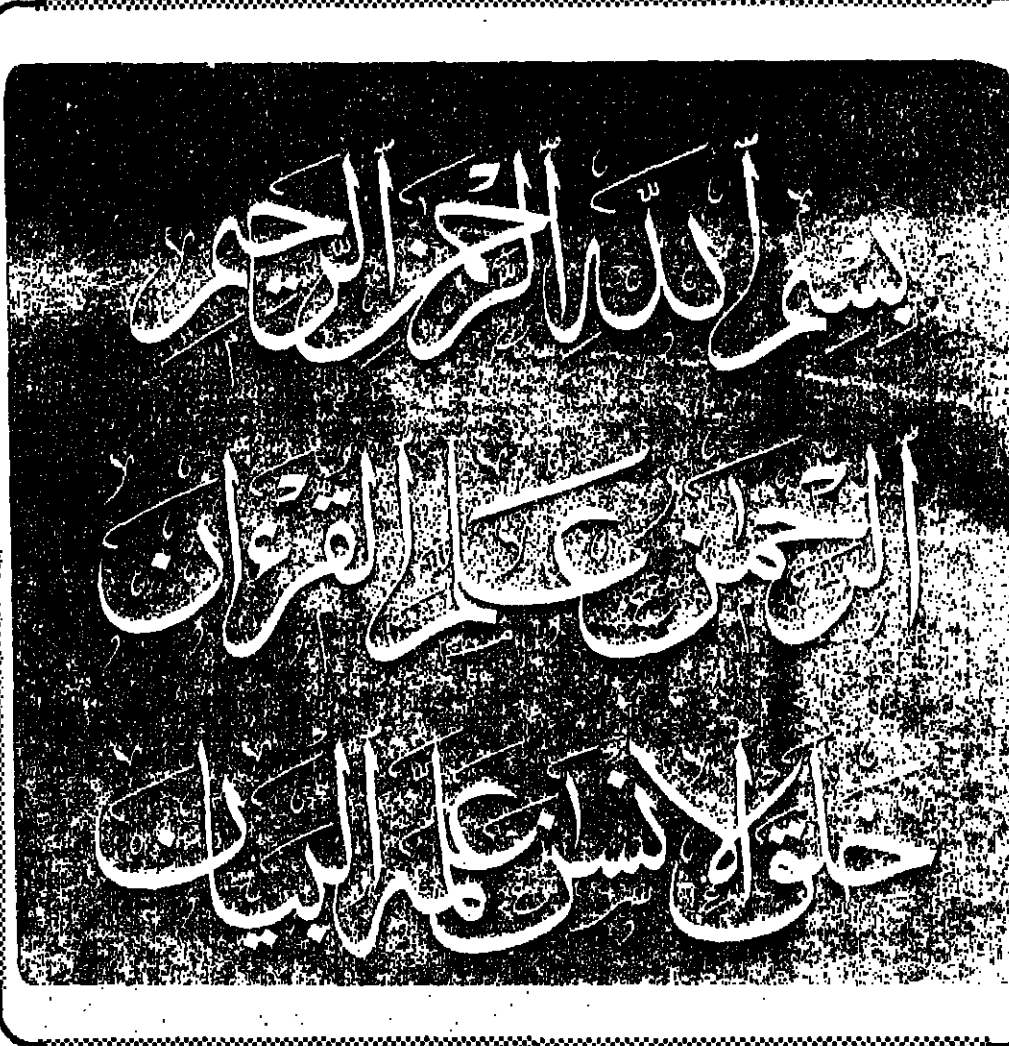 بِسْمِ ٱللَّهِ ٱلرَّحْمَٰنِ ٱلرَّحِيمِ
ٱلرَّحْمَٰنُ عَلَّمَ ٱلْقُرْءَانَ
خَلَقَ ٱلْإِنسَٰنَ عَلَّمَهُ ٱلْبَيَانَ